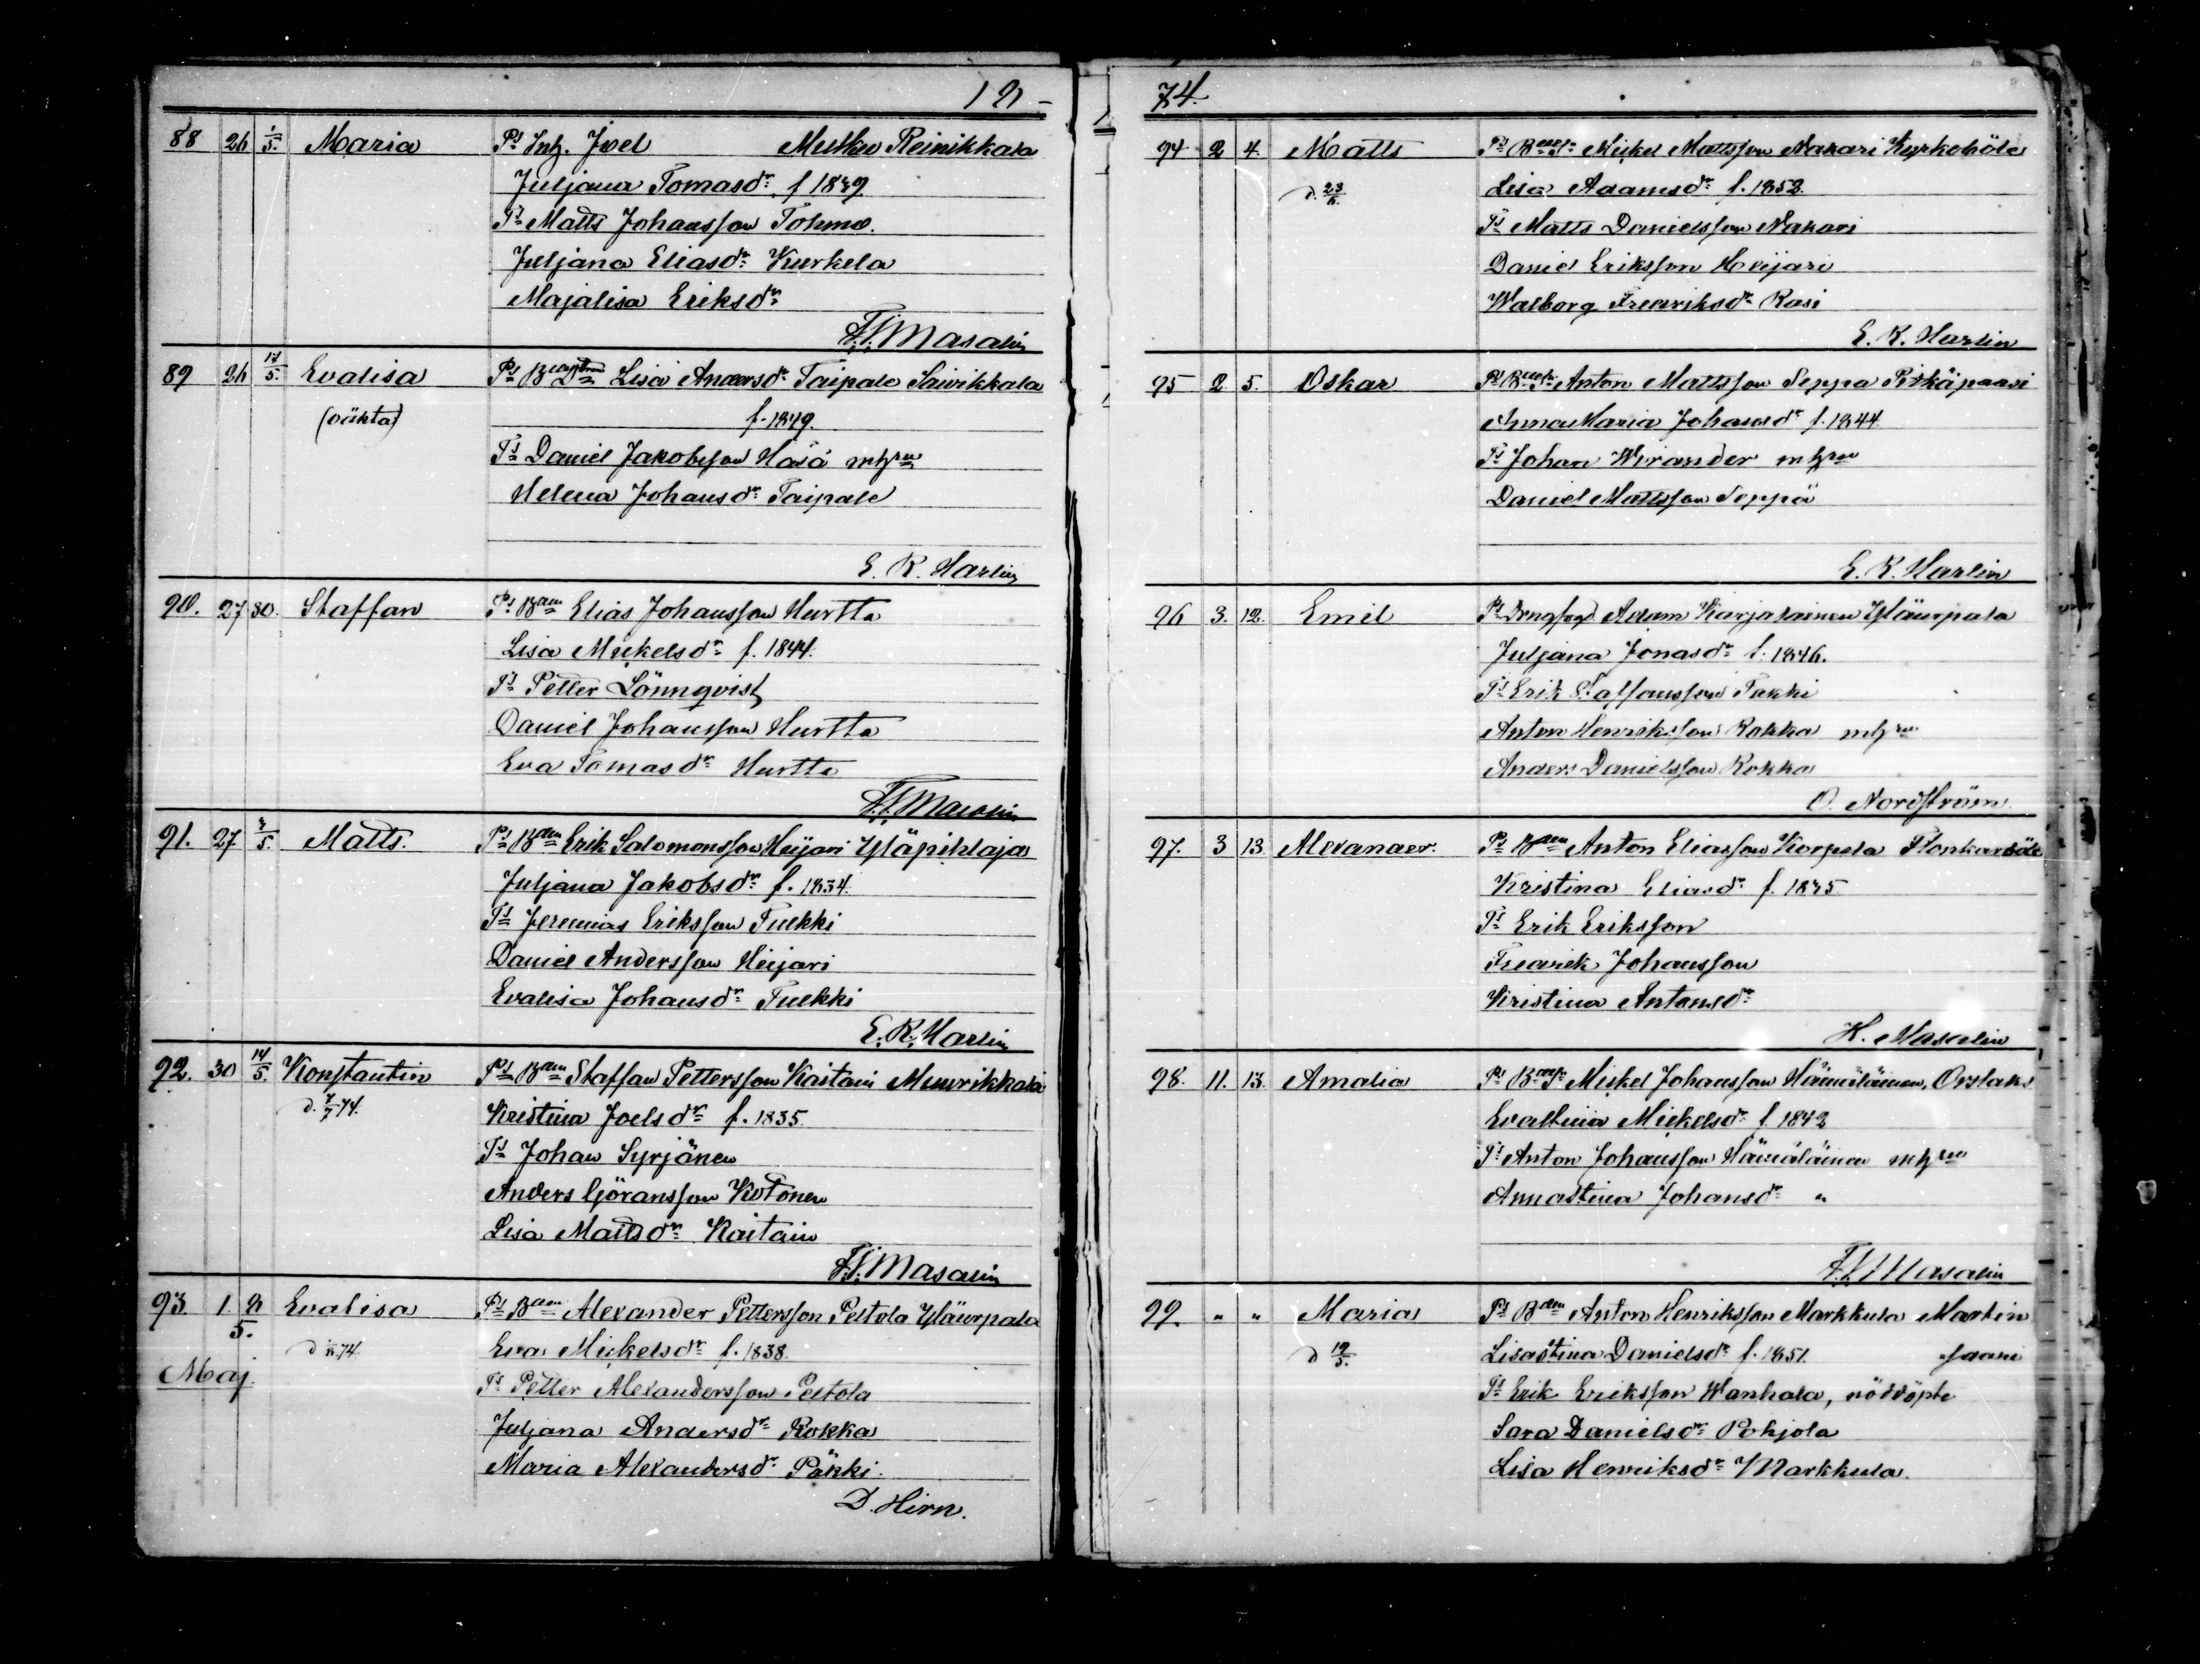 18
88 26 1/5. Maria Ps Inh. Joel Mutkeu Reinikkala
Juljana Tomasdr f 1829
Ts Matts Johansson Tohmo.
Juljana Eliasdr Kurkela
Majalisa Eriksdr
F.J. Masalin
89 26 17/5. Evalisa Ps Lisa Andersdr Taipale Saivikkala
(oäkta) f. 1849.
Ts Daniel Jakobsson Häsä mhru
Helena Johansdr Taipale
E. K. Harlin
90. 27 30. Staffan Ps Bden Elias Johansson Hurtta
Lisa Mickelsdr f. 1844.
Ts Petter Lönnqvist
Daniel Johansson Hurtta
Eva Tomasdr Hurtta
F.J. Masalin
91. 27. 3/5. Matts. Ps Bden Erik Salomonsson Heijari Yläpihlaja
Juljana Jakobsdr f. 1834.
Ts Jeremias Eriksson Tuekki
Daniel Andersson Heijari
Evalisa Johansdr Tuekki
E. K. Harlin
92. 30 14/5. Konstantin Ps Bden Staffan Pettersson Kaitain Muurikkala
d. 7/7 74. Kristina Joelsdr f. 1835.
Ts Johan Syrjänen
Anders Göransson Kotonen
Lisa Mattsdr Kaitain
F.J. Masalin
93. 1. 2/5. Evalisa Ps Bden Alexander Pettersson Peltola Yläurpala
Eva Mickelsdr f. 1838.
Maj. Ts Petter Alexandersson Peltola
Juljana Andersdr Rokka
Maria Alexandersdr Päkki.
D. Hirn.
74.
94 2 4. Matts Ps Mickel Mattsson Nakari Kyrkoböle
d. 23/6. Lisa Adamsdr f. 1852.
Ts Matts Danielsson Nakari
Daniel Eriksson Heijari
Walborg Fredriksdr Rasi
E. K. Harlin
95 2 5. Oskar Ps Anton Mattsson Seppä Pitkäpaasi
Anna Maria Johansdr f. 1844.
Ts Johan Wirander mhru
Daniel Mattsson Seppä
E. K. Harlin
96 3. 12. Emil Ps Adam Karjalainen Yläurpala
Juljana Jonasdr f. 1846.
Ts Erik Staffansson Takki
Anton Henriksson Rokka mhru
Anders Danielsson Rokka
O. Nordström.
97. 3 13. Alexander. Ps Bden Anton Eliasson Korpela
Kristina Eliasdr f. 1835
Ts Erik Eriksson
Fredrik Johansson
Kristina Antonsdr
K. Masalin
98. 11. 13. Amalia Ps Mickel Johansson Hämäläinen, Orslaks
Evastina Mickelsdr f 1842
Ts Anton Johansson Hämäläinen mhru
Annastina Johansdr "
F.J. Masalin
99. " " Maria Ps Bden Anton Henriksson Markkula Martin
d 19/5. Lisastina Danielsdr f. 1851. saari
Ts Erik Eriksson Wanhala, nöddöpte
Sara Danielsdr Pohjola
Lisa Henriksdr Markkula.